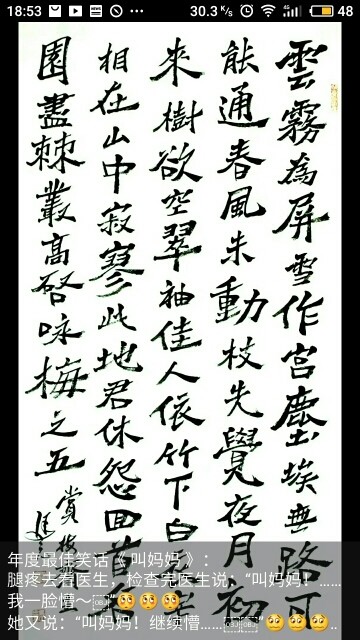 18:53 30.3 K/s 4G 48
雲霧為屏雪作宮塵埃無路可
能通春風未動枝先覺夜月初
來樹欲空翠袖佳人依竹下白
相在山中寂寥此地君休怨回
園盡棘叢高啓咏梅之五
賞
年度最佳笑话《 叫妈妈 》：
腿疼去看医生，检查完医生说：“叫妈妈！……
我一脸懵～
她又说：“叫妈妈！继续懵……